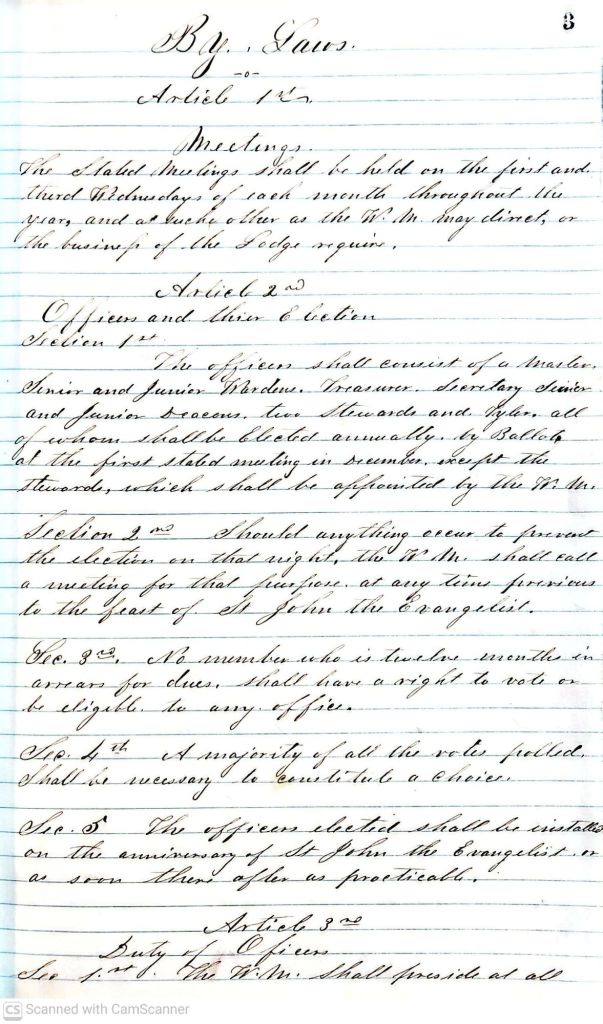 3
By. Laws.
-o-
Article 1st.
Meetings.
The Stated Meetings shall be held on the first and
third Wednesdays of each month throughout the
year, and at such other as the W. M. may direct, or
the business of the Lodge require.
Article 2nd
Officers and thier Election
Section 1st
The officers shall consist of a Master.
Senior and Junior Wardens. Treasurer. Secretary Senior
and Junior Deacons. two Stewards and Tyler. all
of whom shall be Elected annually. by Ballot,
at the first stated meeting in December. except the
Stewards, which shall be appointed by the W. M.
Section 2nd Should anything occur to prevent
the election on that night, the W. M. shall call
a meeting for that purpose. at any time previous
to the feast of St John the Evangelist.
Sec. 3rd. No member who is twelve months in
arrears for dues. shall have a right to vote or
be eligible. to any office.
Sec. 4th A majority of all the votes polled.
Shall be necessary to constitute a choice.
Sec. 5 The officers elected shall be installed
on the anniversary of St John the Evangelist. or
as soon there after as practicable.
Article 3rd
Duty of Oficers
Sec 1.st. The W. M. Shall preside at all
CS Scanned with CamScanner